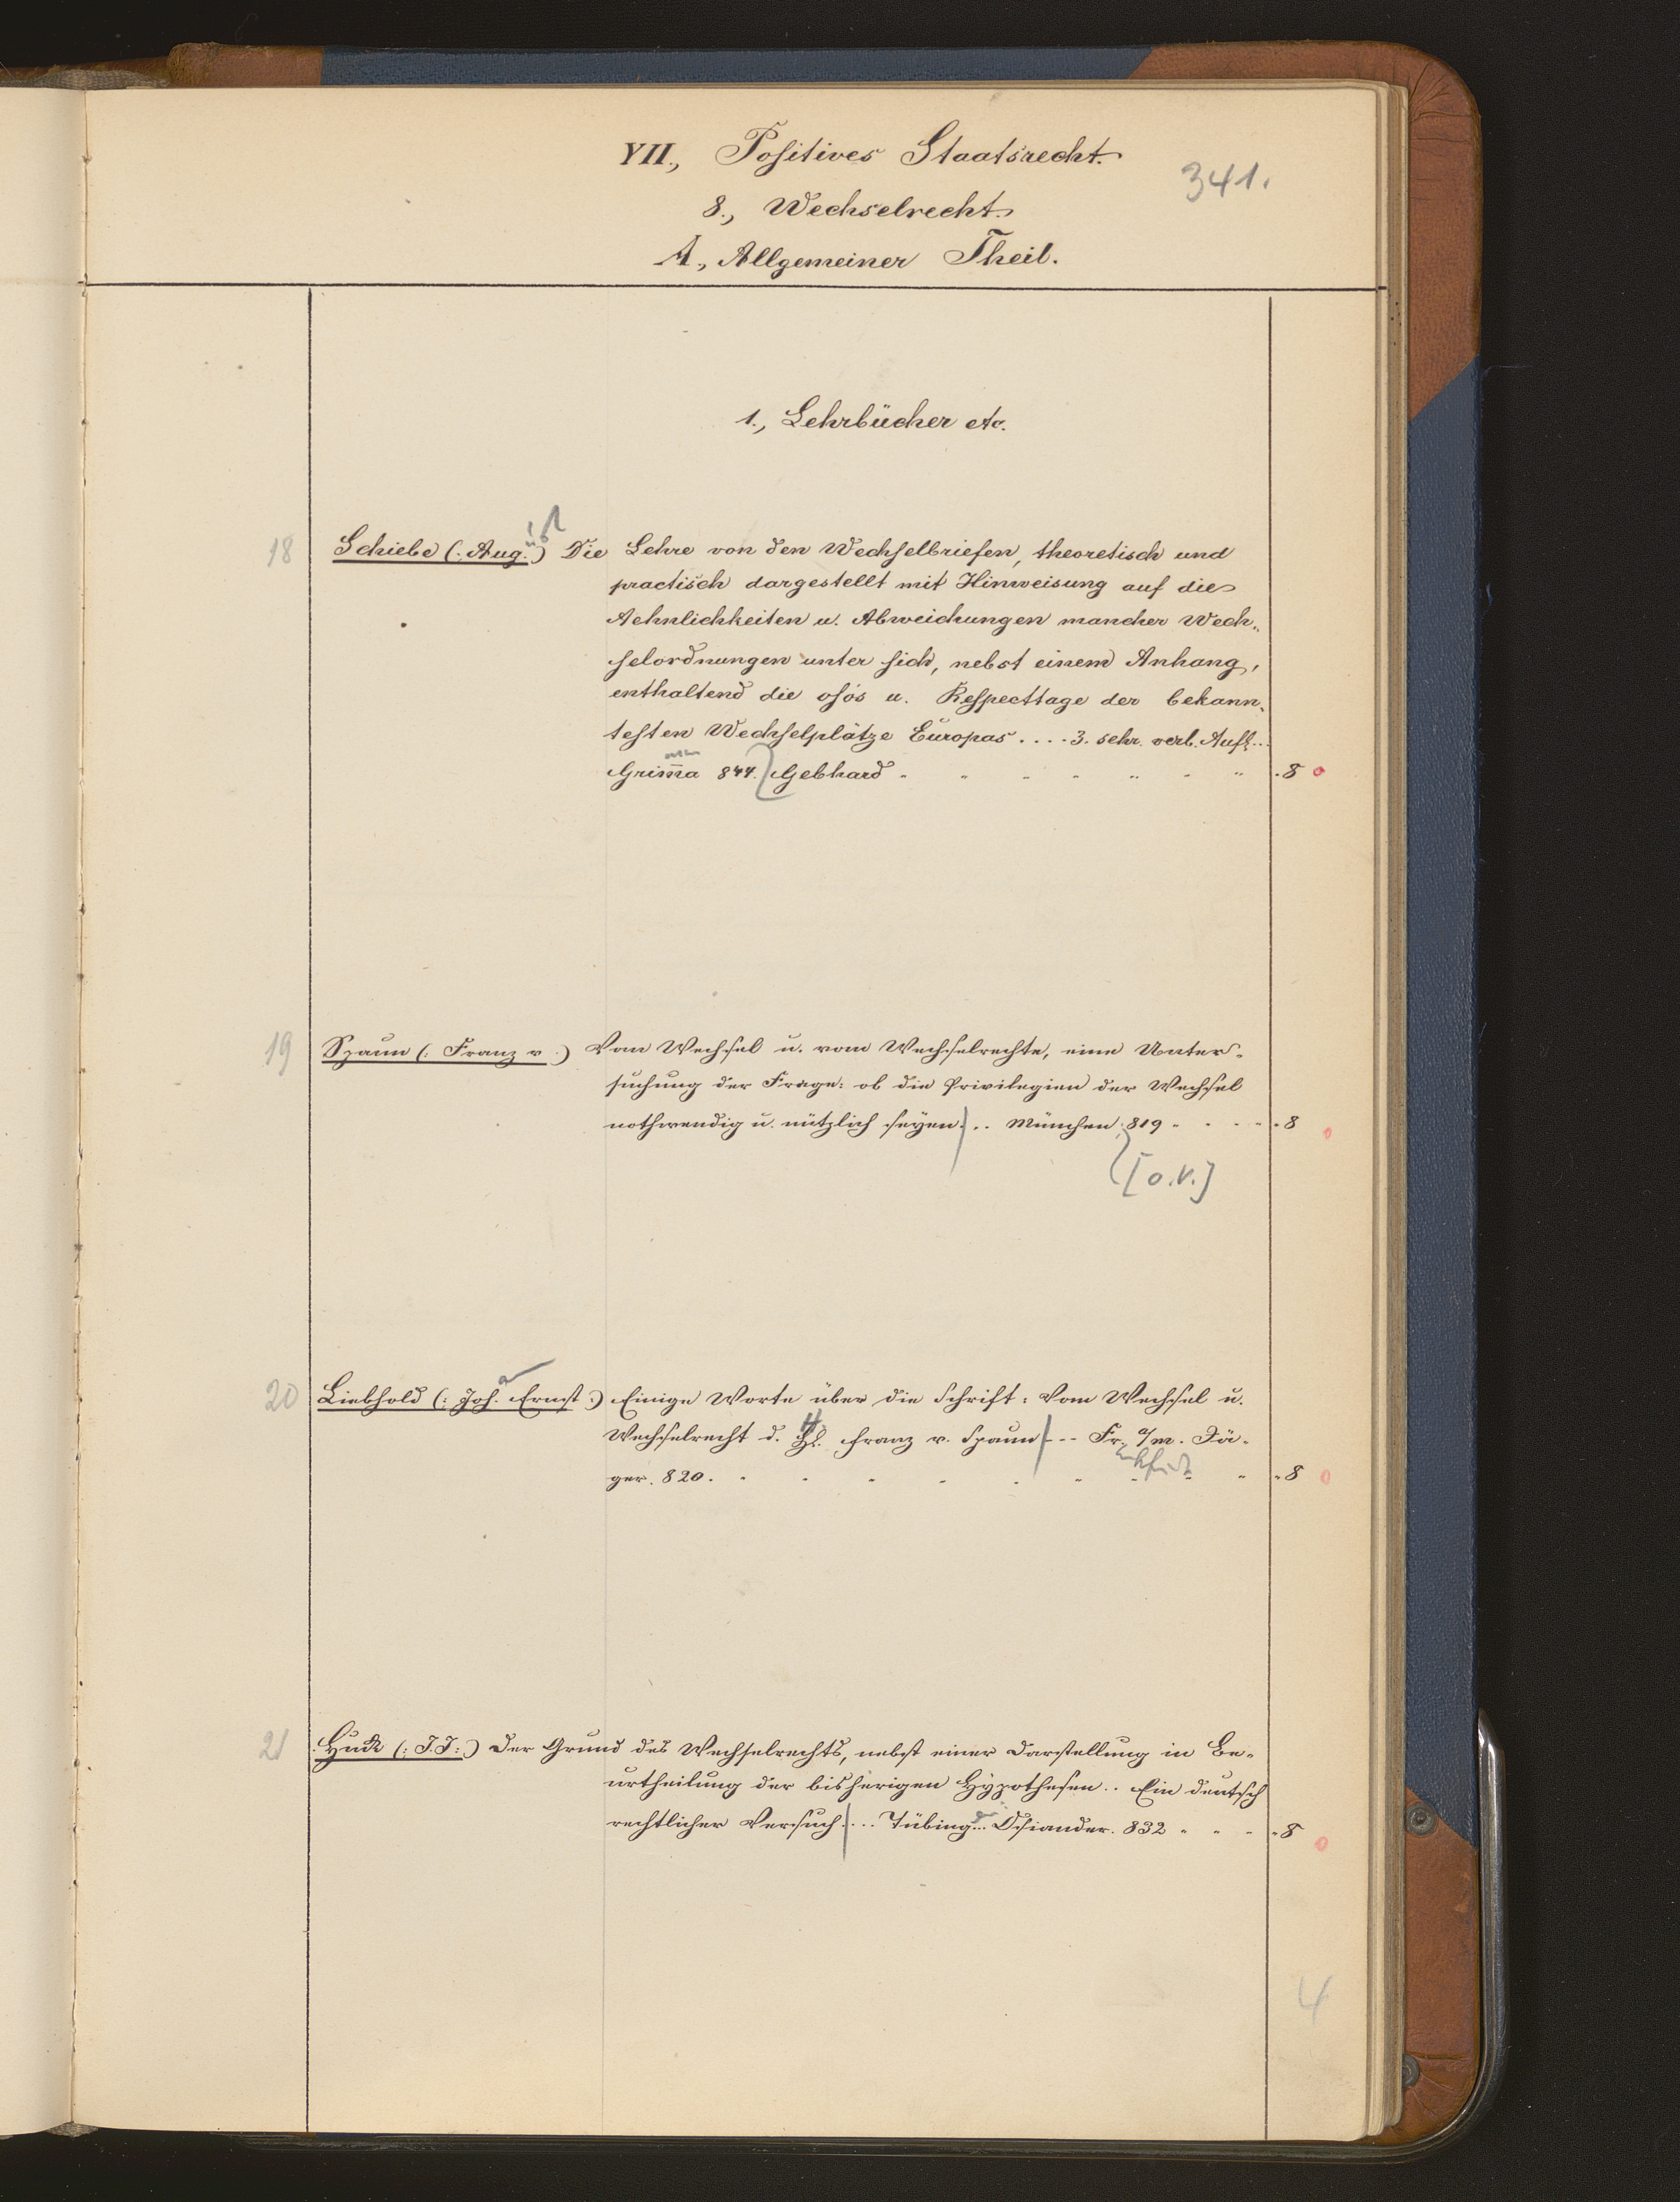 VII., Positives Staatsrecht.
341.
8., Wechselrecht.
A., Allgemeiner Theil.
1., Lehrbücher etc.
18 Schiebe (: Aug. :) Die Lehre von den Wechselbriefen, theoretisch und
practisch dargestellt mit Hinweisung auf die
Aehnlichkeiten u. Abweichungen mancher Wech-
selordnungen unter sich, nebst einem Anhang,
enthaltend die Osós u. Respecttage der bekann-
testen Wechselplätze Europas .... 3. sehr. verb. Aufl...
Grim̄a 844. Gebhard " " " " " " " . 8 o
19 Spaun (: Franz v :) Vom Wechsel u. vom Wechselrechte, eine Unter-
suchung der Frage: ob die Privilegien der Wechsel
nothwendig u. nützlich seyen. .. München. 819 " " " " . 8 o
[o.V.]
20 Liebhold (: Joh. Ernst :) Einige Worte über die Schrift: Vom Wechsel u.
Wechselrecht d. H. Franz v. Spaun - - Fr. a/m. Jä-
ger. 820. " " " " " " " " " . 8 o
21 Huck (: J. J. :) Der Grund des Wechselrechts, nebst einer Darstellung in Be-
urtheilung der bisherigen Hypothesen .. Ein deutsch
rechtlicher Versuch. ... Tübing... Osiander. 832 " " " . 8 o
4